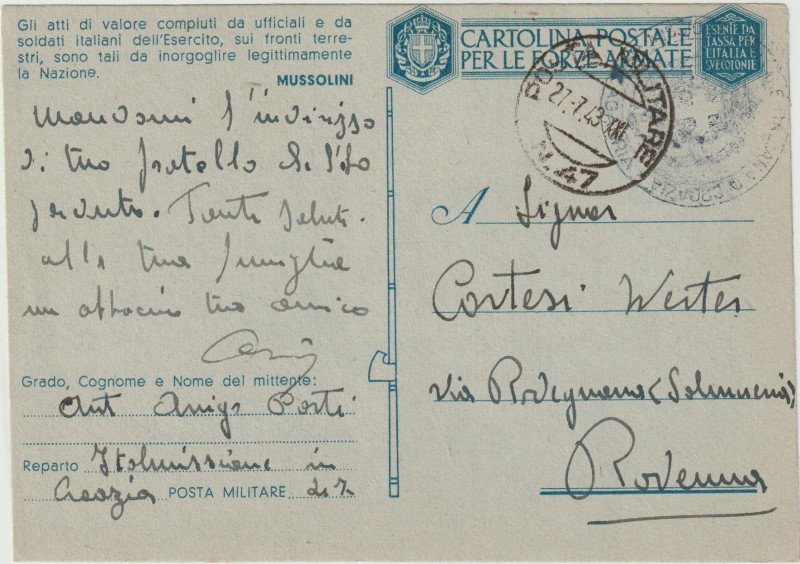 Gli atti di valore compiuti da ufficiali e da
soldati italiani dell'Esercito, sui fronti terre-
stri, sono tali da inorgoglire legittimamente
la Nazione.
MUSSOLINI
Mandami l'indirizzo
di tuo fratello che l'ho
perduto. Tanti saluti
alla tua famiglia
un abbraccio tuo amico
Grado, Cognome e Nome del mittente:
Aut Arrigo Porti
Reparto Italmissione in
Croazia POSTA MILITARE 47
CARTOLINA POSTALE
PER LE FORZE ARMATE
ESENTE DA
TASSA PER
L'ITALIA E
SVE COLONIE
POSTA MILITARE
27.7.43
N.47
A Signor
Cortesi Werter
Via Romagnana (Salmueria)
Ravenna